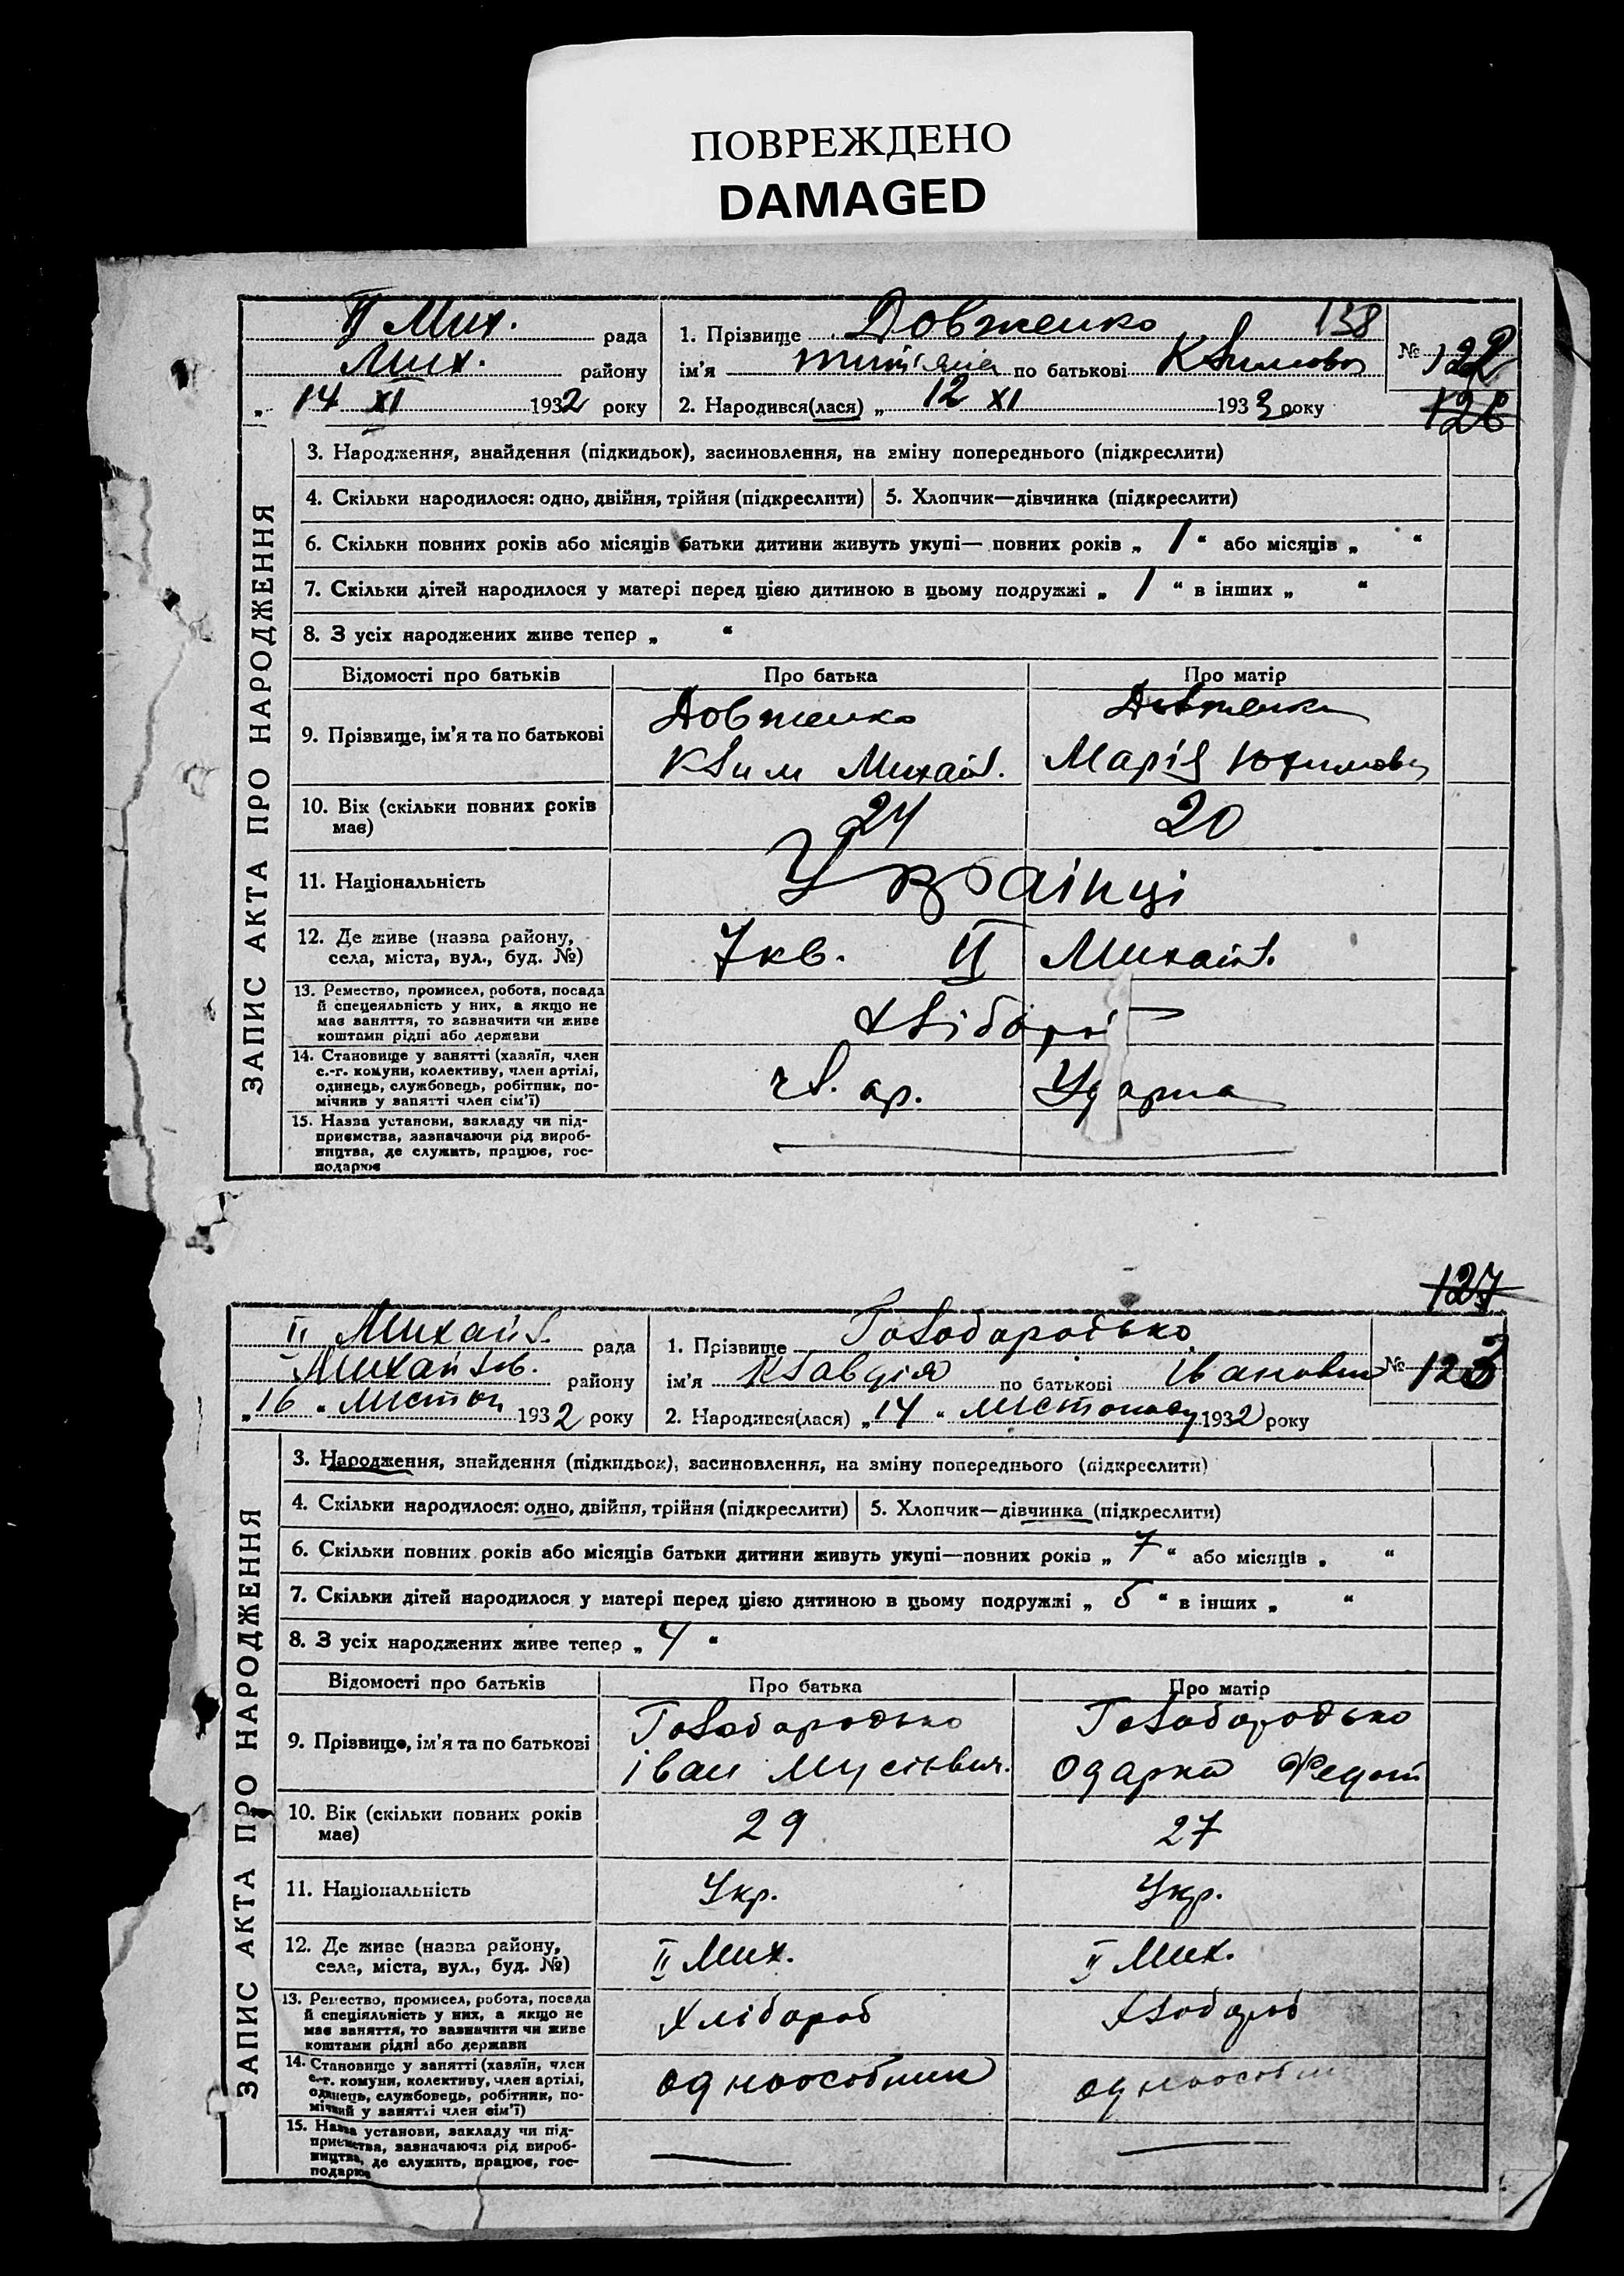 ПОВРЕЖДЕНО
DAMAGED
II Мих. рада
Мих. району
„ 14 XI 1932 року
1. Прізвище Довженко 138
ім'я Титіяна по батькові Климовна
2. Народився(лася) „ 12 XI 1933 року
№ 122
126
ЗАПИС АКТА ПРО НАРОДЖЕННЯ
3. Народження, знайдення (підкидьок), засиновлення, на зміну попереднього (підкреслити)
4. Скільки народилося: одно, двійня, трійня (підкреслити) 5. Хлопчик—дівчинка (підкреслити)
6. Скільки повних років або місяців батьки дитини живуть укупі— повних років „ 1 “ або місяців „ “
7. Скільки дітей народилося у матері перед цією дитиною в цьому подружжі „ 1 “ в інших „ “
8. З усіх народжених живе тепер „ “
Відомості про батьків Про батька Про матір
9. Прізвище, ім'я та по батькові
Довженко
Клим Михайл.
Довженко
Марія Юхимовн
10. Вік (скільки повних років
має)
24 20
11. Національність Українці
12. Де живе (назва району,
села, міста, вул., буд. №)
7 кв. II Михайл.
13. Ремество, промисел, робота, посада
й спецеяльність у них, а якщо не
має заняття, то зазначити чи живе
коштами рідні або держави
Хлібороб
14. Становище у занятті (хазяїн, член
с.-г. комуни, колективу, член артілі,
одинець, службовець, робітник, по-
мічник у занятті член сім'ї)
чл. ар. Ударна
15. Назва установи, закладу чи під-
приємства, зазначаючи рід вироб-
ництва, де служить, працює, гос-
подарює
127
II Михайл. рада
Михайлів. району
„16 “ Листоп 1932 року
1. Прізвище Голобородько
ім'я Клавдія по батькові Івановна
2. Народився(лася) „14 “ листопаду 1932 року
№ 123
ЗАПИС АКТА ПРО НАРОДЖЕННЯ
3. Народження, знайдення (підкидьок), засиновлення, на зміну попереднього (підкреслити)
4. Скільки народилося: одно, двійня, трійня (підкреслити) 5. Хлопчик—дівчинка (підкреслити)
6. Скільки повних років або місяців батьки дитини живуть укупі—повних років „ 7 “ або місяців „ “
7. Скільки дітей народилося у матері перед цією дитиною в цьому подружжі „ 5 “ в інших „ “
8. З усіх народжених живе тепер „ 4 “
Відомості про батьків Про батька Про матір
9. Прізвище, ім'я та по батькові
Голобородько
Іван Мусієвич.
Голобородько
Одарка Федот
10. Вік (скільки повних років
має)
29 27
11. Національність Укр. Укр.
12. Де живе (назва району,
села, міста, вул., буд. №)
II Мих. II Мих.
13. Ремество, промисел, робота, посада
й спеціяльність у них, а якщо не
має заняття, то зазначити чи живе
коштами рідні або держави
Хлібороб Хлобороб
14. Становище у занятті (хазяїн, член
с.-г. комуни, колективу, член артілі,
одинець, службовець, робітник, по-
мічний у занятті член сім'ї)
одноосібник одноосібн
15. Назва установи, закладу чи під-
приємства, зазначаючи рід вироб-
ництва, де служить, працює, гос-
подарює